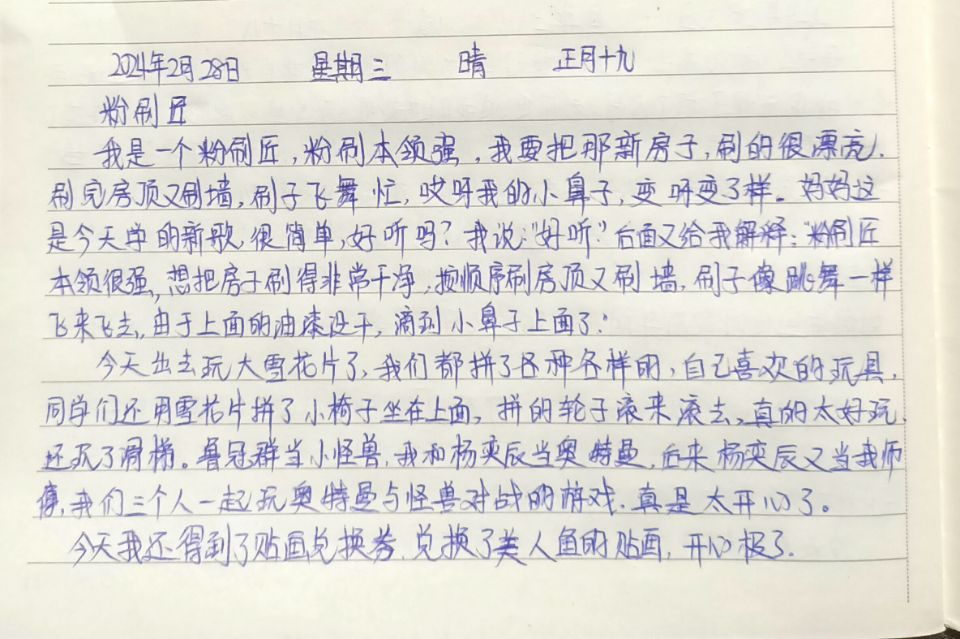 2024年2月28日 星期三 晴 正月十九
粉刷匠
我是一个粉刷匠,粉刷本领强,我要把那新房子,刷的很漂亮.
刷完房顶又刷墙,刷子飞舞忙,哎呀我的小鼻子,变呀变了样。妈妈这
是今天学的新歌,很简单,好听吗?我说:“好听.”后面又给我解释:“粉刷匠
本领很强,想把房子刷得非常干净,按顺序刷房顶又刷墙,刷子像跳舞一样
飞来飞去,由于上面的油漆没干,滴到小鼻子上面了.”
今天出去玩大雪花片了,我们都拼了各种各样的,自己喜欢的玩具,
同学们还用雪花片拼了小椅子坐在上面,拼的轮子滚来滚去,真的太好玩,
还玩了滑梯。鲁冠群当小怪兽,我和杨奕辰当奥特曼,后来杨奕辰又当我师
傅,我们三个人一起玩奥特曼与怪兽对战的游戏,真是太开心了。
今天我还得到了贴画兑换券,兑换了美人鱼的贴画,开心极了.